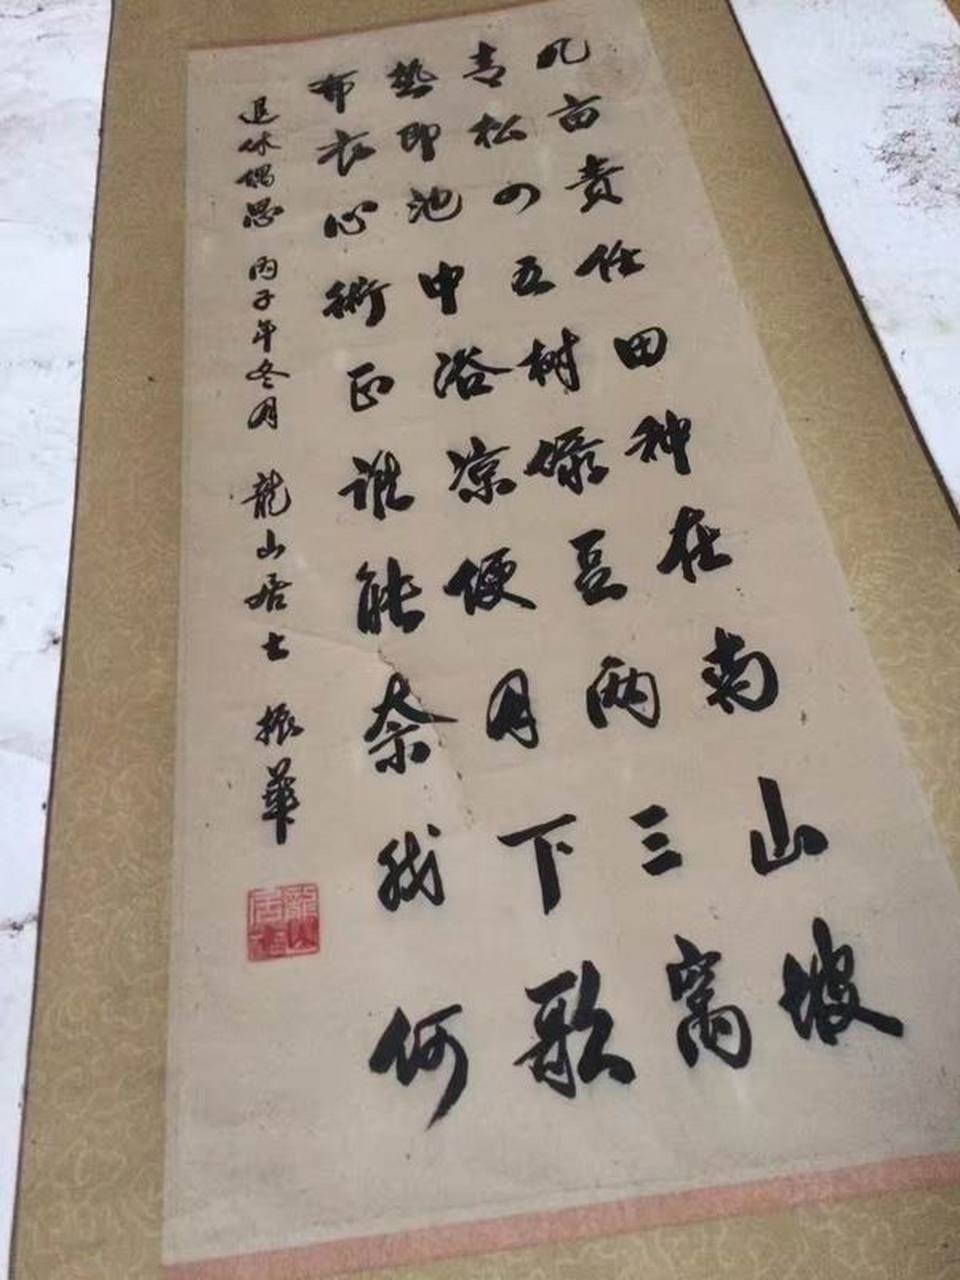 几亩责任田种在南山坡
青松四五树绿豆两三窝
热即池中浴凉便月下歌
布衣心术正谁能奈我何
退休偶思 丙子年冬月 龍山居士 振華